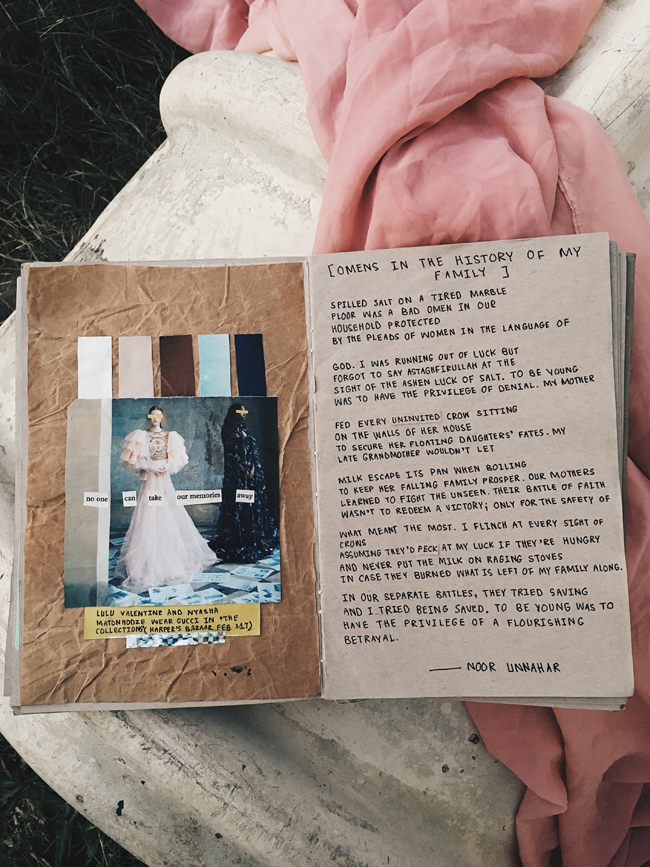 no one can take our memories away
LULU VALENTINE AND NYASHA
MATONHODZE WEAR GUCCI IN "THE
COLLECTIONS" (HARPER'S BAZAAR FEB 2017)
[OMENS IN THE HISTORY OF MY
FAMILY ]
SPILLED SALT ON A TIRED MARBLE
FLOOR WAS A BAD OMEN IN OUR
HOUSEHOLD PROTECTED
BY THE PLEADS OF WOMEN IN THE LANGUAGE OF
GOD. I WAS RUNNING OUT OF LUCK BUT
FORGOT TO SAY ASTAGHFIRULLAH AT THE
SIGHT OF THE ASHEN LUCK OF SALT. TO BE YOUNG
WAS TO HAVE THE PRIVILEGE OF DENIAL. MY MOTHER
FED EVERY UNINVITED CROW SITTING
ON THE WALLS OF HER HOUSE
TO SECURE HER FLOATING DAUGHTERS' FATES. MY
LATE GRANDMOTHER WOULDN'T LET
MILK ESCAPE ITS PAN WHEN BOILING
TO KEEP HER FALLING FAMILY PROSPER. OUR MOTHERS
LEARNED TO FIGHT THE UNSEEN. THEIR BATTLE OF FAITH
WASN'T TO REDEEM A VICTORY; ONLY FOR THE SAFETY OF
WHAT MEANT THE MOST. I FLINCH AT EVERY SIGHT OF
CROWS
ASSUMING THEY'D PECK AT MY LUCK IF THEY'RE HUNGRY
AND NEVER PUT THE MILK ON RAGING STOVES
IN CASE THEY BURNED WHAT IS LEFT OF MY FAMILY ALONG.
IN OUR SEPARATE BATTLES, THEY TRIED SAVING
AND I TRIED BEING SAVED. TO BE YOUNG WAS TO
HAVE THE PRIVILEGE OF A FLOURISHING
BETRAYAL.
— NOOR UNNAHAR